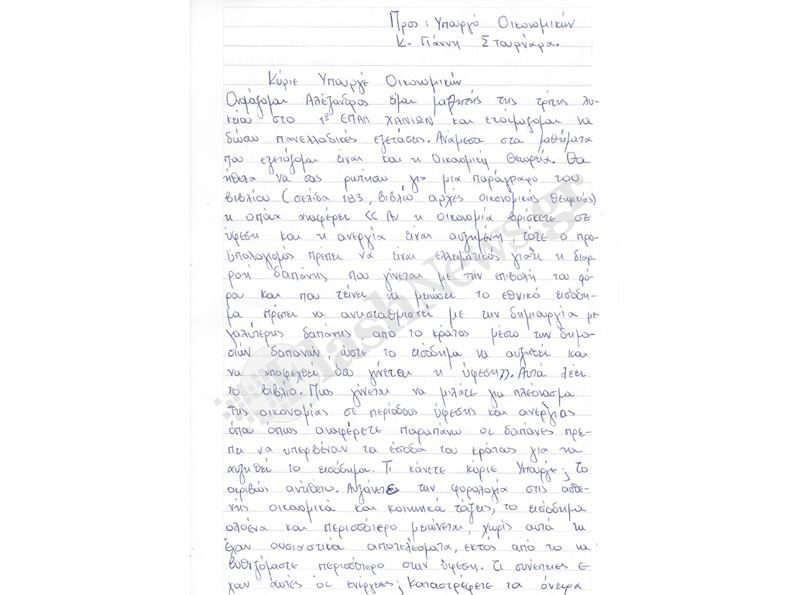 Προς: Υπουργό Οικονομικών
Κ. Γιάννη Στουρνάρα.
Κύριε Υπουργέ Οικονομικών
Ονομάζομαι Αλέξανδρος είμαι μαθητής της τρίτης λυ-
κείου στο 1ο ΕΠΑΛ ΧΑΝΙΩΝ και ετοιμάζομαι να
δώσω πανελλαδικές εξετάσεις. Ανάμεσα στα μαθήματα
που εξετάζομαι είναι και η Οικονομική Θεωρία. Θα
ήθελα να σας ρωτήσω για μια παράγραφο του
βιβλίου (σελίδα 183, βιβλίο αρχές οικονομικής θεωρίας)
η οποία αναφέρει <<Αν η οικονομία βρίσκετε σε
ύφεση και η ανεργία είναι αυξημένη, τότε ο προ-
ϋπολογισμός πρέπει να είναι ελλειματικός γιατί η διαρ-
ροή δαπάνης που γίνεται με την επιβολή του φό-
ρου και που τείνει να μειώσει το εθνικό εισόδη-
μα πρέπει να αντισταθμιστεί με την δημιουργία με-
γαλύτερης δαπάνης από το κράτος μέσω των δημο-
σίων δαπανών, ώστε το εισόδημα να αυξηθεί και
να αποφευχθεί όσο γίνεται η ύφεση>>. Αυτά λέει
το βιβλίο. Πως γίνεται να μιλάτε για πλεόνασμα
της οικονομίας σε περίοδους ύφεσης και ανεργίας
όπου όπως αναφέρετε παραπάνω οι δαπάνες πρέ-
πει να υπερβέναν τα έσοδα του κράτους για να
αυξηθεί το εισόδημα. Τι κάνετε κύριε Υπουργέ; το
ακριβώς αντίθετο. Αυξάνετε την φορολογία στις ασθε-
νής οικονομικά και κοινωνικά τάξεις, το εισόδημα
ολοένα και περισσότερο μειώνεται, χωρίς αυτά να
έχουν ουσιαστικά αποτελέσματα, εκτός από το να
βυθιζόμαστε περισσότερο στην ύφεση. Τι συνέπειες έ-
χουν αυτές ός ενέργειες; Καταστρέφετε τα όνειρα
FlashNews.gr